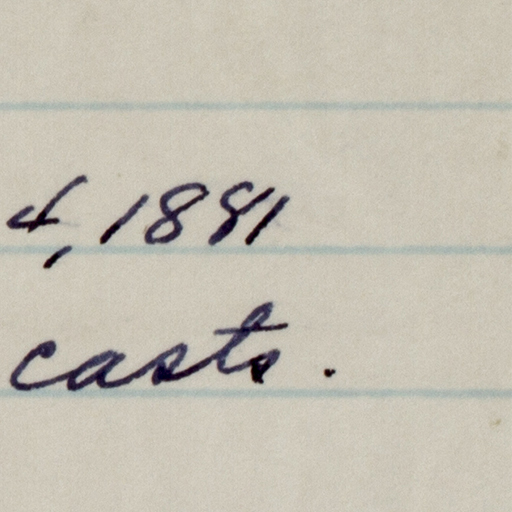 4, 1881
casts.